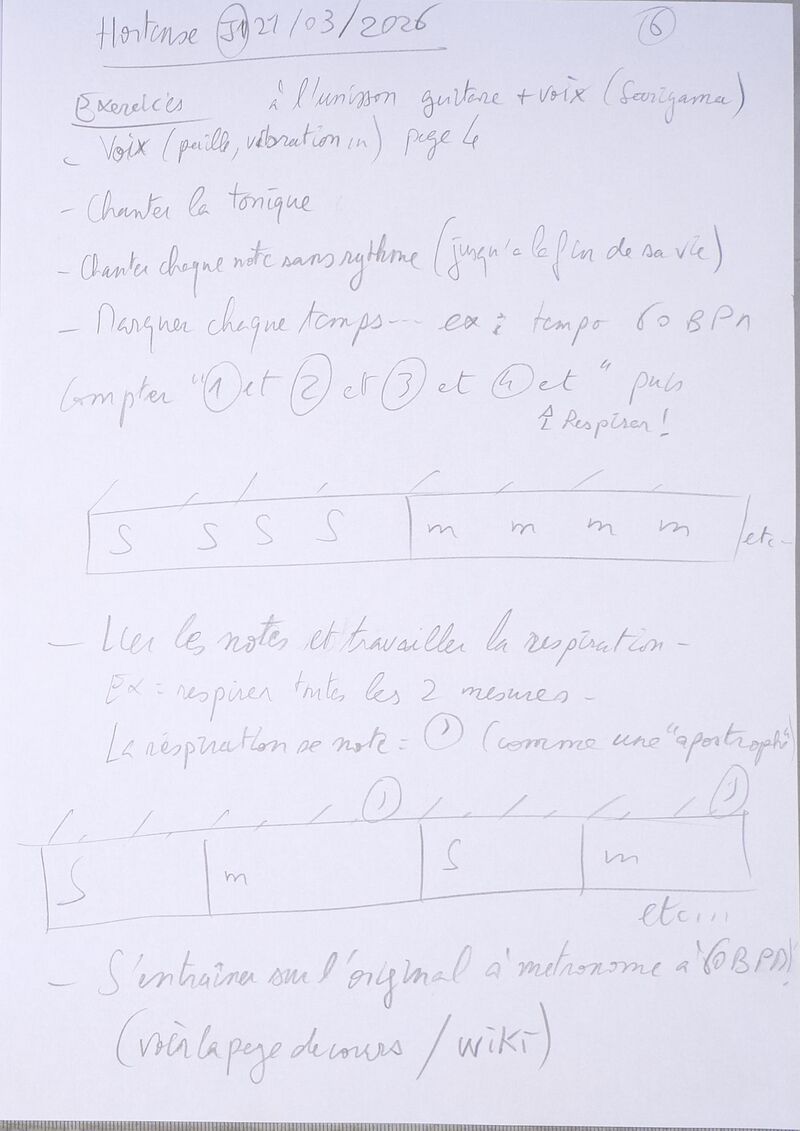 Hortense J1 21/03/2026 6
Exercices à l'unisson guitare + voix (Sarigama)
- Voix (paille, vibration) page 4
- Chanter la tonique
- Chanter chaque note sans rythme (jusqu'à la fin de sa vie)
- Marquer chaque temps... ex : tempo 60 BPM
Compter "1 et 2 et 3 et 4 et" puis
Respirer !
S S S S m m m m etc-
- Lier les notes et travailler la respiration -
Ex = respirer toutes les 2 mesures -
La respiration se note = ’ (comme une "apostrophe")
’ ’
S m S m
etc...
- S'entraîner sur l'original à métronome à 60 BPM !
(voir la page de cours / wiki)